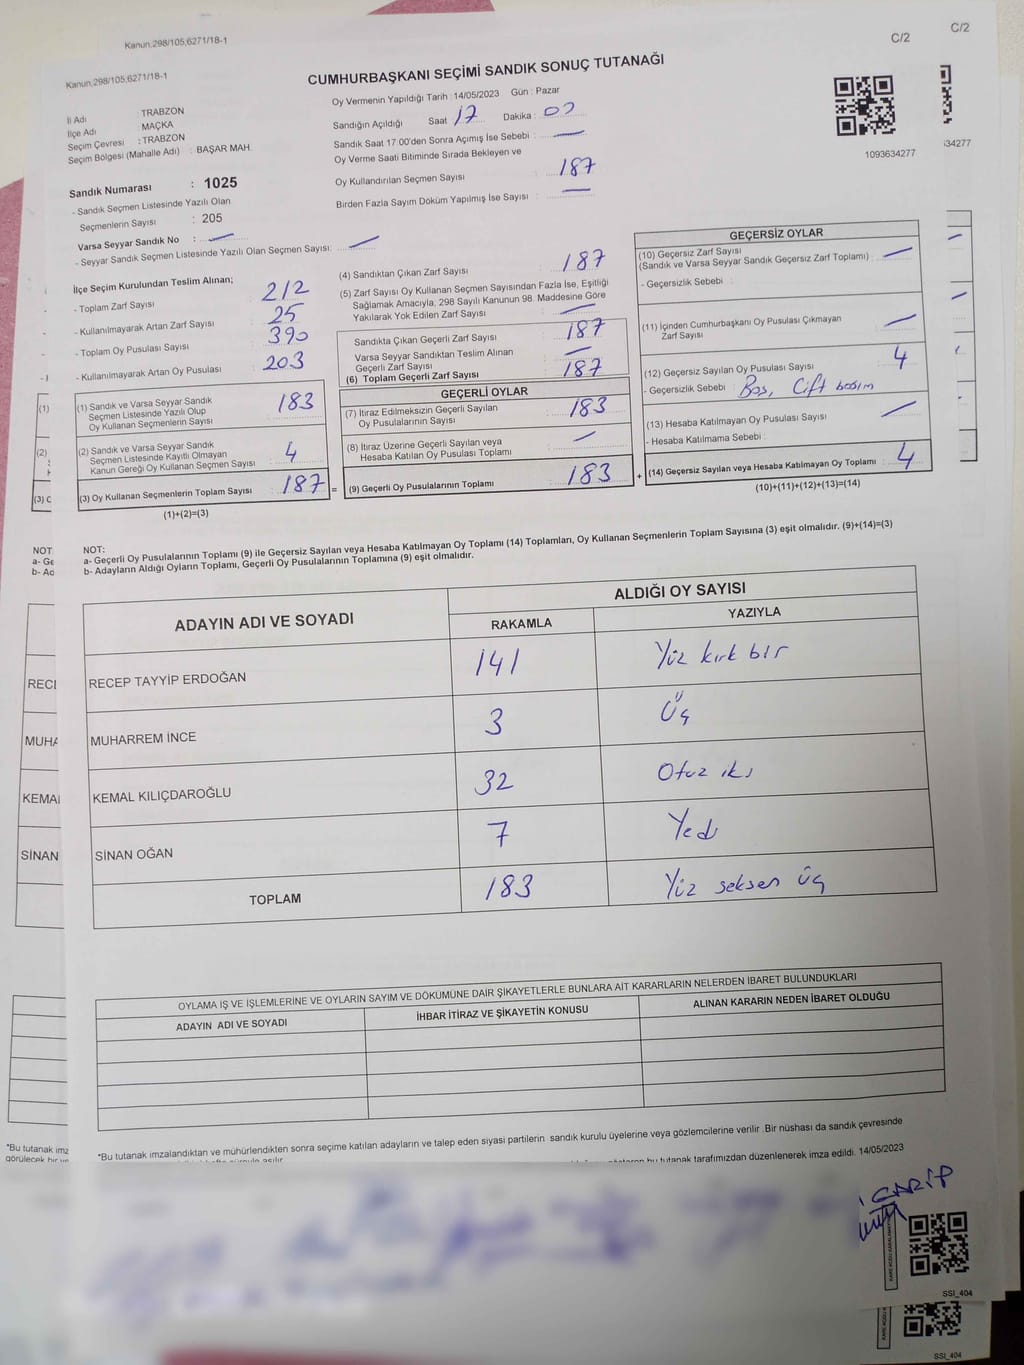 Kanun,298/105,6271/18-1
C/2
C/2
Kanun,298/105,6271/18-1
CUMHURBAŞKANI SEÇİMİ SANDIK SONUÇ TUTANAĞI
İl Adı TRABZON
İlçe Adı : MAÇKA
Seçim Çevresi : TRABZON
Seçim Bölgesi (Mahalle Adı) : BAŞAR MAH.
Oy Vermenin Yapıldığı Tarih : 14/05/2023 Gün : Pazar
Sandığın Açıldığı Saat : 17 Dakika :
Sandık Saat 17:00'den Sonra Açımış İse Sebebi : —
Oy Verme Saati Bitiminde Sırada Bekleyen ve
Oy Kullandırılan Seçmen Sayısı : 187
Birden Fazla Sayım Döküm Yapılmış İse Sayısı : —
1093634277
634277
Sandık Numarası : 1025
- Sandık Seçmen Listesinde Yazılı Olan
Seçmenlerin Sayısı : 205
Varsa Seyyar Sandık No : —
- Seyyar Sandık Seçmen Listesinde Yazılı Olan Seçmen Sayısı: —
İlçe Seçim Kurulundan Teslim Alınan;
- Toplam Zarf Sayısı : 212
- Kullanılmayarak Artan Zarf Sayısı : 25
- Toplam Oy Pusulası Sayısı : 390
- Kullanılmayarak Artan Oy Pusulası : 203
(1) Sandık ve Varsa Seyyar Sandık
Seçmen Listesinde Yazılı Olup
Oy Kullanan Seçmenlerin Sayısı : 183
(2) Sandık ve Varsa Seyyar Sandık
Seçmen Listesinde Kayıtlı Olmayan
Kanun Gereği Oy Kullanan Seçmen Sayısı : 4
(3) Oy Kullanan Seçmenlerin Toplam Sayısı : 187 =
(1)+(2)=(3)
(4) Sandıktan Çıkan Zarf Sayısı : 187
(5) Zarf Sayısı Oy Kullanan Seçmen Sayısından Fazla İse, Eşitliği
Sağlamak Amacıyla, 298 Sayılı Kanunun 98. Maddesine Göre
Yakılarak Yok Edilen Zarf Sayısı : —
Sandıkta Çıkan Geçerli Zarf Sayısı : 187
Varsa Seyyar Sandıktan Teslim Alınan
Geçerli Zarf Sayısı : —
(6) Toplam Geçerli Zarf Sayısı : 187
GEÇERLİ OYLAR
(7) İtiraz Edilmeksizin Geçerli Sayılan
Oy Pusulalarının Sayısı : 183
(8) İtiraz Üzerine Geçerli Sayılan veya
Hesaba Katılan Oy Pusulası Toplamı : —
(9) Geçerli Oy Pusulalarının Toplamı : 183 +
GEÇERSİZ OYLAR
(10) Geçersiz Zarf Sayısı
(Sandık ve Varsa Seyyar Sandık Geçersiz Zarf Toplamı) : —
- Geçersizlik Sebebi :
(11) İçinden Cumhurbaşkanı Oy Pusulası Çıkmayan
Zarf Sayısı : —
(12) Geçersiz Sayılan Oy Pusulası Sayısı : 4
- Geçersizlik Sebebi : Boş, Çift basım
(13) Hesaba Katılmayan Oy Pusulası Sayısı : —
- Hesaba Katılmama Sebebi :
(14) Geçersiz Sayılan veya Hesaba Katılmayan Oy Toplamı : 4
(10)+(11)+(12)+(13)=(14)
NOT:
a- Geçerli Oy Pusulalarının Toplamı (9) ile Geçersiz Sayılan veya Hesaba Katılmayan Oy Toplamı (14) Toplamları, Oy Kullanan Seçmenlerin Toplam Sayısına (3) eşit olmalıdır. (9)+(14)=(3)
b- Adayların Aldığı Oyların Toplamı, Geçerli Oy Pusulalarının Toplamına (9) eşit olmalıdır.
ADAYIN ADI VE SOYADI
ALDIĞI OY SAYISI
RAKAMLA YAZIYLA
RECEP TAYYİP ERDOĞAN 141 Yüz kırk bir
MUHARREM İNCE 3 Üç
KEMAL KILIÇDAROĞLU 32 Otuz iki
SİNAN OĞAN 7 Yedi
TOPLAM 183 Yüz seksen üç
OYLAMA İŞ VE İŞLEMLERİNE VE OYLARIN SAYIM VE DÖKÜMÜNE DAİR ŞİKAYETLERLE BUNLARA AİT KARARLARIN NELERDEN İBARET BULUNDUKLARI
ADAYIN ADI VE SOYADI İHBAR İTİRAZ VE ŞİKAYETİN KONUSU ALINAN KARARIN NEDEN İBARET OLDUĞU
*Bu tutanak imzalandıktan ve mühürlendikten sonra seçime katılan adayların ve talep eden siyasi partilerin sandık kurulu üyelerine veya gözlemcilerine verilir .Bir nüshası da sandık çevresinde
bu tutanak tarafımızdan düzenlenerek imza edildi. 14/05/2023
SSI_404
SSI_404